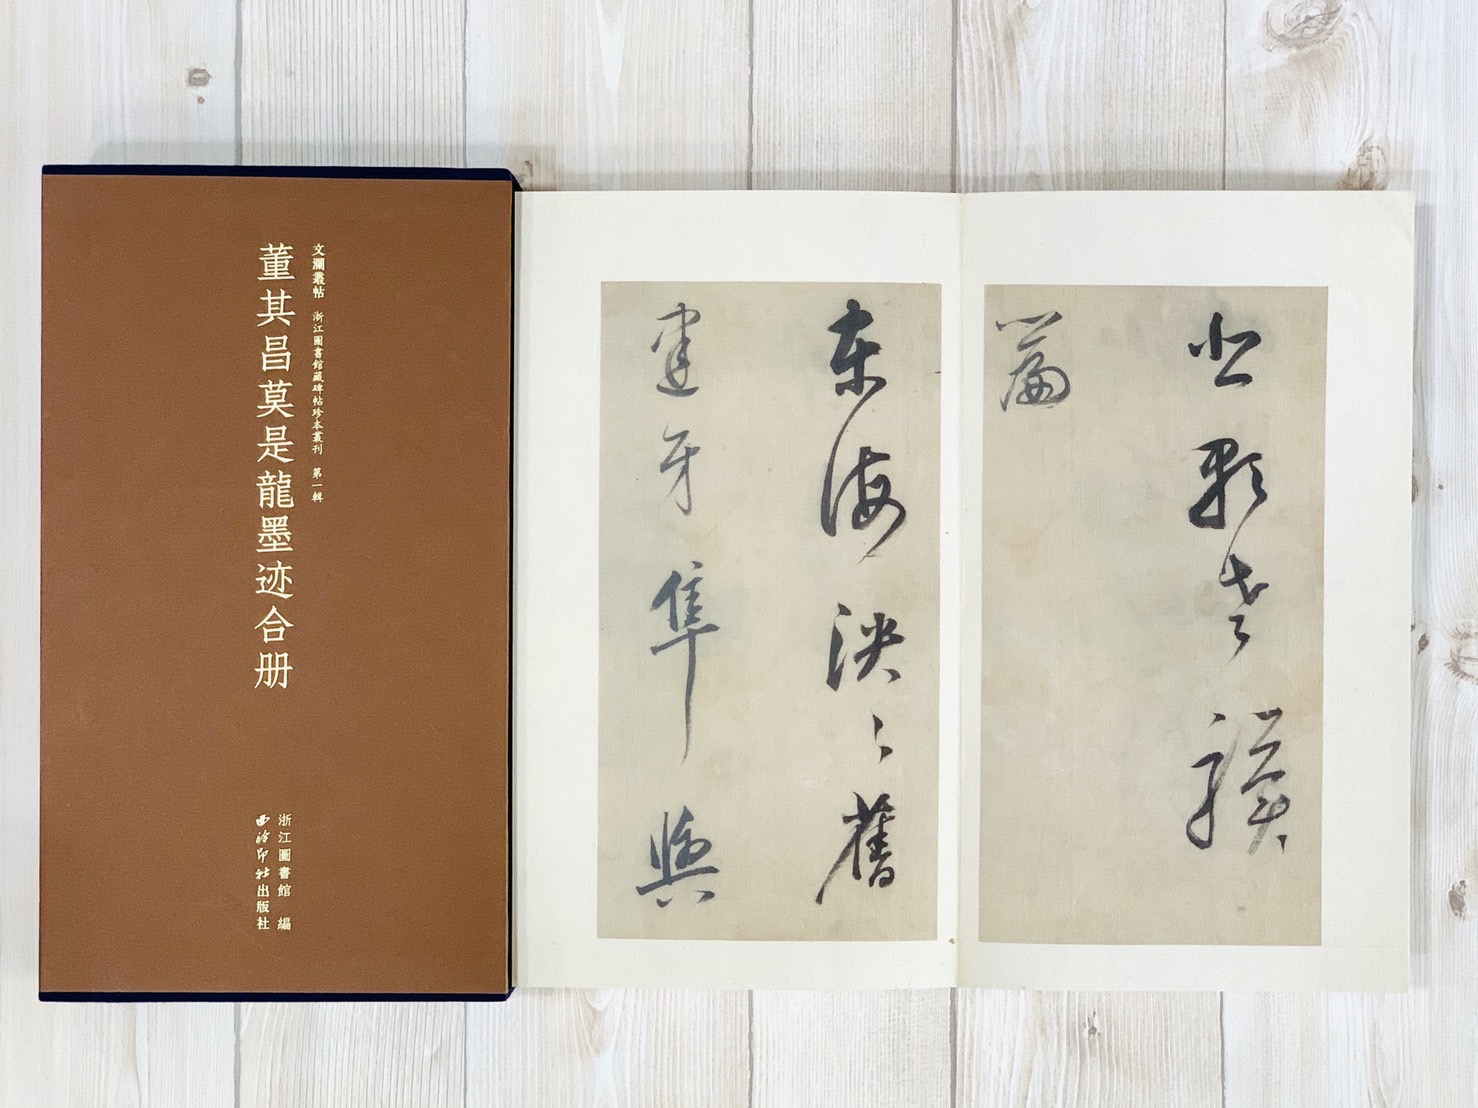 文瀾叢帖 浙江圖書館藏碑帖珍本叢刊 第一輯
董其昌莫是龍墨迹合册
浙江圖書館 編
西泠印社出版社
篇
東海泱〻舊
建牙隼